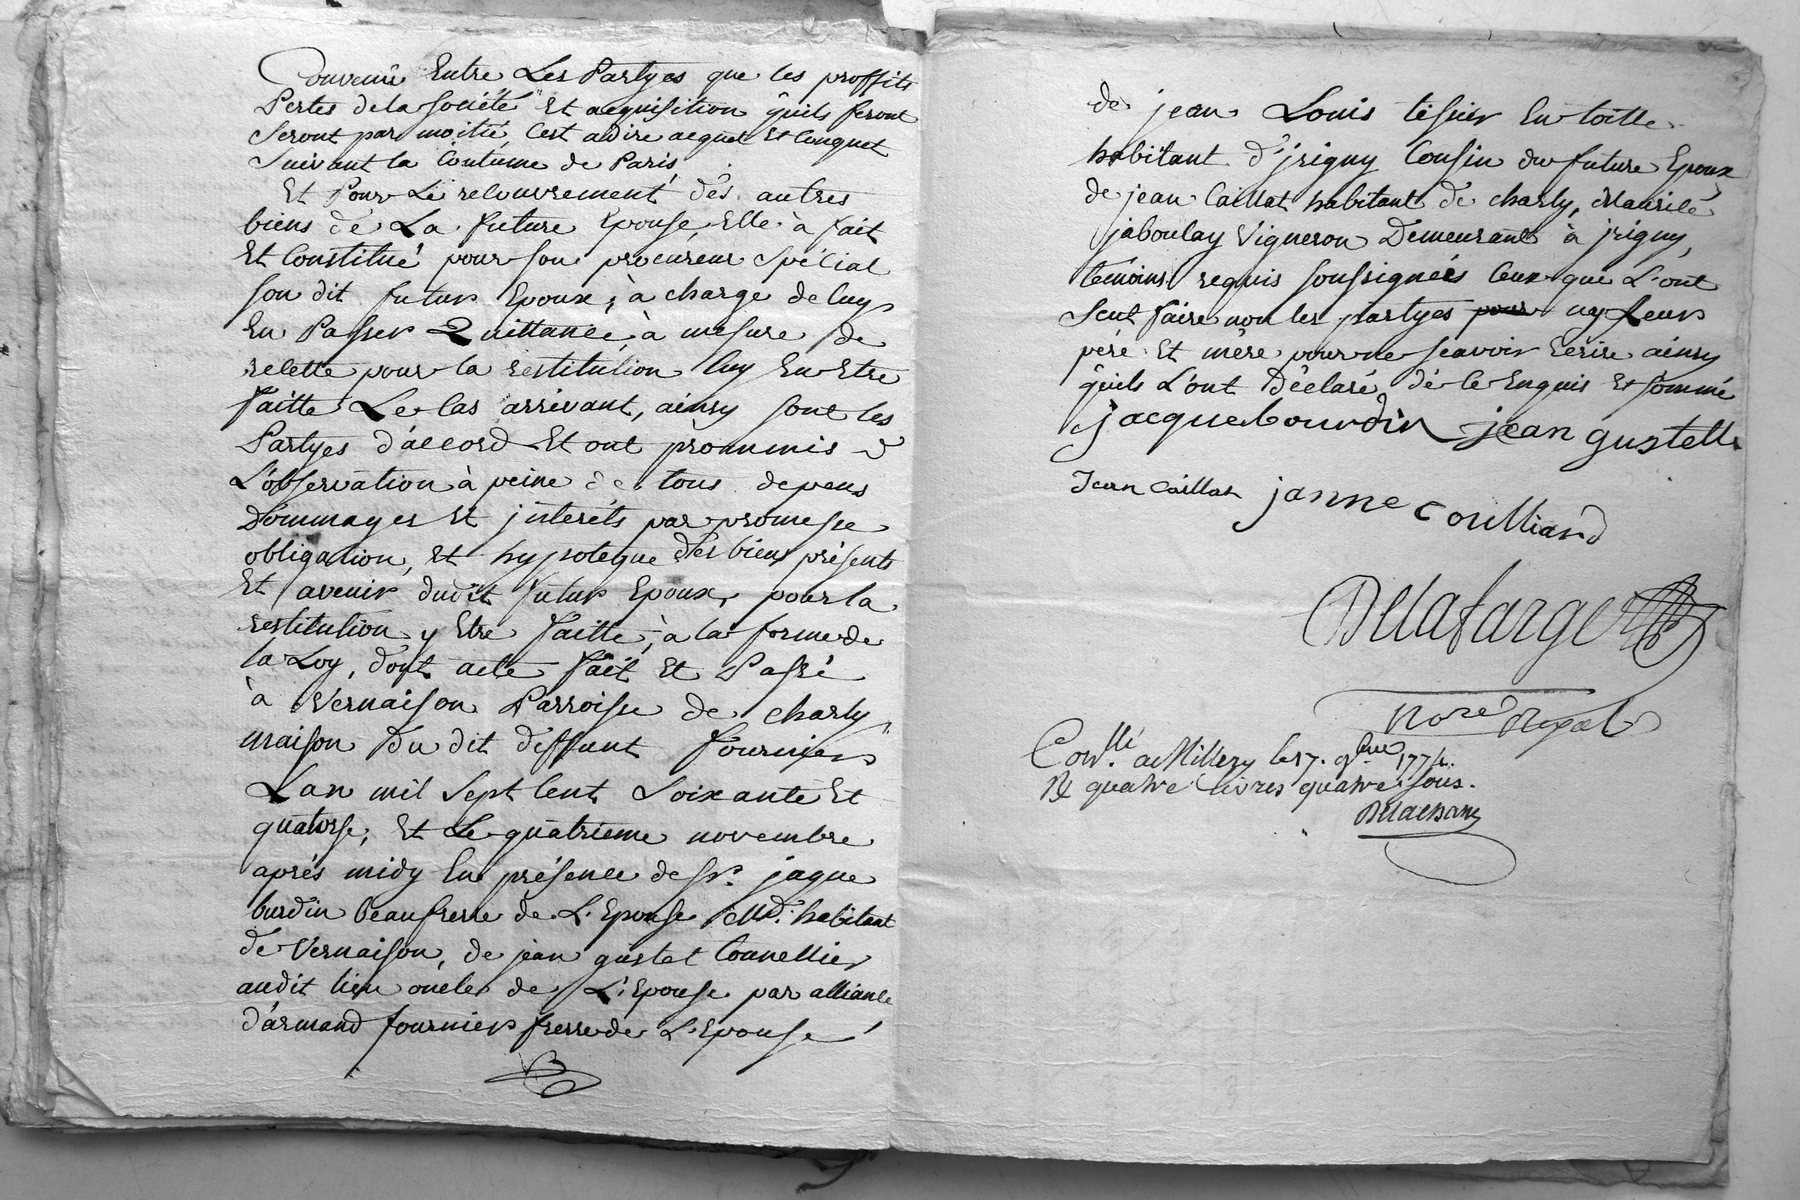 Convenu Entre Les Partyes que les proffits
Pertes de la société Et acquisition quils feront
Seront par moitié, C'est adire acquet Et Conquet
Suivant la Coutume de Paris,
Et Pour Le recouvrement dés autres
biens dé La future Epouse, Elle à fait
Et Constitué pour son procureur Spécial
son dit futur Epoux, à charge de luy
En Passer Quittance, à mesure de
relette pour la restitution luy En Etre
faitte Le Cas arrivant, ainsy sont les
Partyes d'accord Et ont prommis
L'observation à peine de tous depens
Dommages Et jnterets par promesse
obligation, Et hypoteque des biens présents
Et avenir dudit futur Epoux, pour la
restitution y Etre faitte, à la forme de
la Loy, dont acte fait Et Passé
à Vernaison Parroisse de charly
maison du dit deffunt fournier
L'an mil Sept Cent Soixante Et
quatorse, Et Le quatrieme novembre
aprés midy En présence de sr. jaque
burdin beaufrere de L'Epouse Md. habitant
de Vernaison, de jean gustet Cordellier
audit lieu oncle de L'Epouse par alliance
d'armand fournier frere de L'Epouse
de jean Louis tisseur En toille
habitant d'jrigny Cousin du future Epoux
de jean Caillat habitant de charly, Maurice
jaboulay Vigneron Demeurant à jrigny,
témoins requis soussignées Ceux que L'ont
Sçut faire non les partyes pour ny Leur
pére Et mére pour ne sçavoir Ecrire ainsy
quils L'ont Déclaré, dé Ce Enquis Et sommé
jacque bourdin jean gustelle
Jean Caillat janne Coulliard
Delafarge
Nore Royal
Conllé. a Millery le 17. 9bre 1774.
R quatre livres quatre sous.